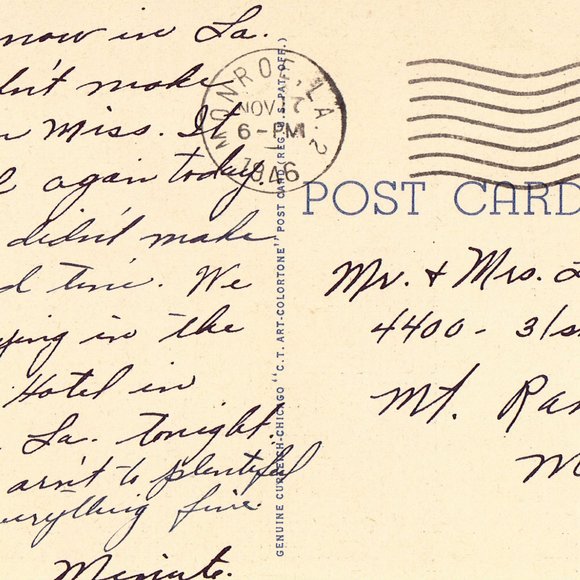 now in La.
dn't make
Miss. It
again today.
didn't make
d time. We
ying in the
Hotel in
La. tonight.
arn't to plentiful
everything fine
MONROE, LA. 2
NOV 7
6-PM
1946
GENUINE CURTEICH-CHICAGO "C.T. ART-COLORTONE" POST CARD (REG. U.S. PAT. OFF.)
POST CARD
Mr. & Mrs.
4400 - 31s
Mt. Ran